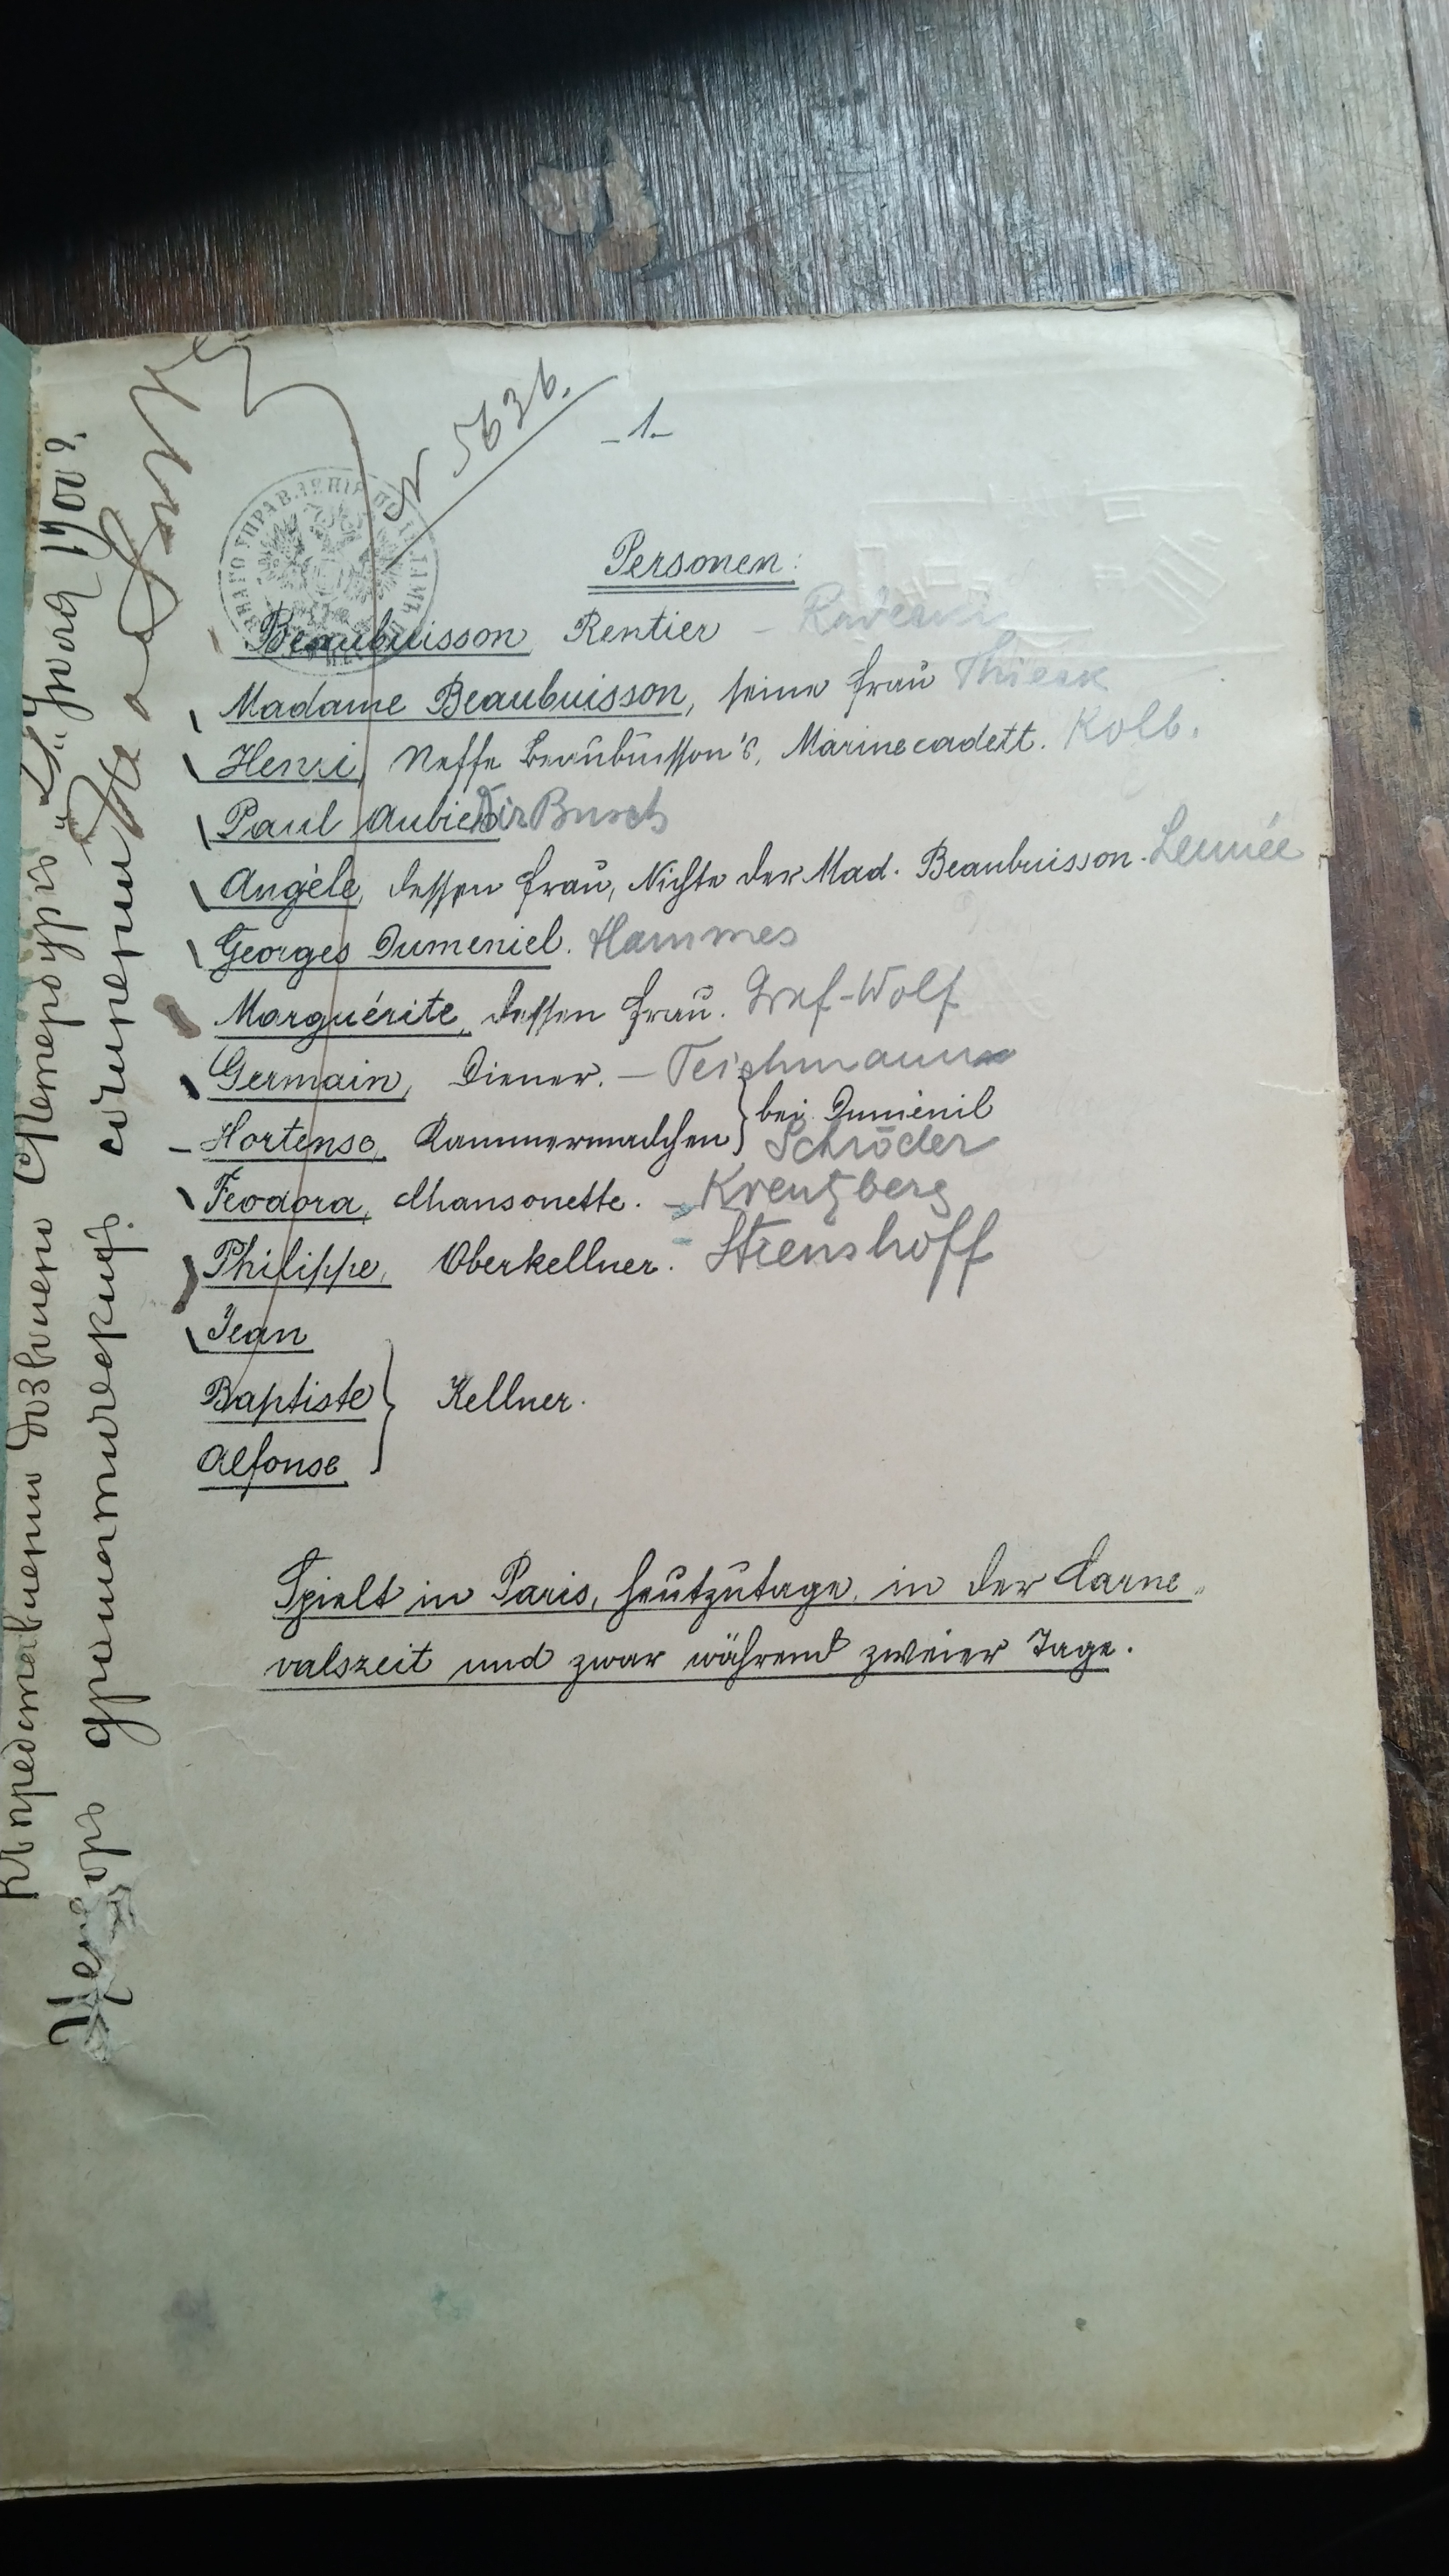 Къ представленію дозволено С Петербургъ „21“ Іюля 1900 г.
Цензоръ драматическихъ сочиненій
N 5636.
- 1. -
УПРАВЛЕНІЕ ПО ДѢЛАМЪ
Personen:
Beaubuisson, Rentier -
Madame Beaubuisson, seine Frau
Henri, Neffe Beaubuisson's, Marinecadett. Kolb.
Paul Aubier Dir Busch
Angèle, dessen Frau, Nichte der Mad. Beaubuisson. Lennée
Georges Dumeniel. Hammes
Marguérite, dessen Frau. Graf-Wolf
Germain, Diener. - Teichmann
Hortense, Kammermädchen } bei Duménil
Schröder
Feodora, Chansonette. - Kreutzberg
Philippe, Oberkellner.
Jean
Baptiste } Kellner.
Alfonse
Spielt in Paris, heutzutage, in der Carne-
valszeit und zwar während zweier Tage.